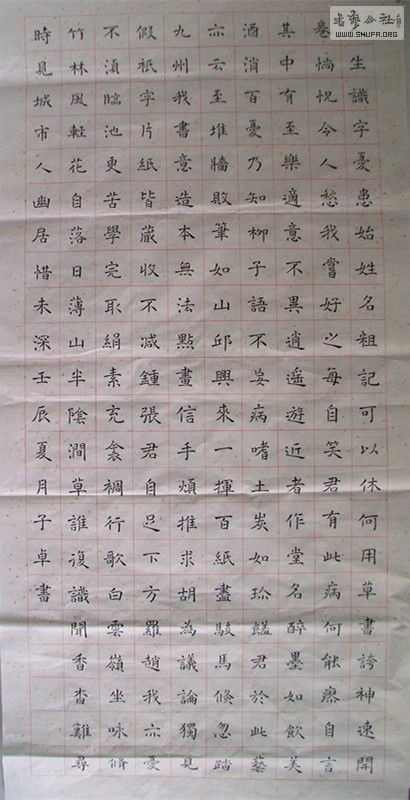 生識字憂患始姓名粗記可以休何用草書誇神速開
卷惝怳令人愁我嘗好之每自笑君有此病何能瘳自言
其中有至樂適意不異逍遙遊近者作堂名醉墨如飲美
酒消百憂乃知柳子語不妄病嗜土炭如珍饈君於此藝
亦云至堆牆敗筆如山邱興來一揮百紙盡駿馬倏忽踏
九州我書意造本無法點畫信手煩推求胡為議論獨見
假衹字片紙皆藏收不减鍾張君自足下方羅趙我亦憂
不須臨池更苦學完取絹素充衾裯行歌白雲嶺坐咏脩
竹林風輕花自落日薄山半陰澗草誰復識聞香杳難尋
時見城市人幽居惜未深壬辰夏月子卓書
WWW.SHUFA.ORG